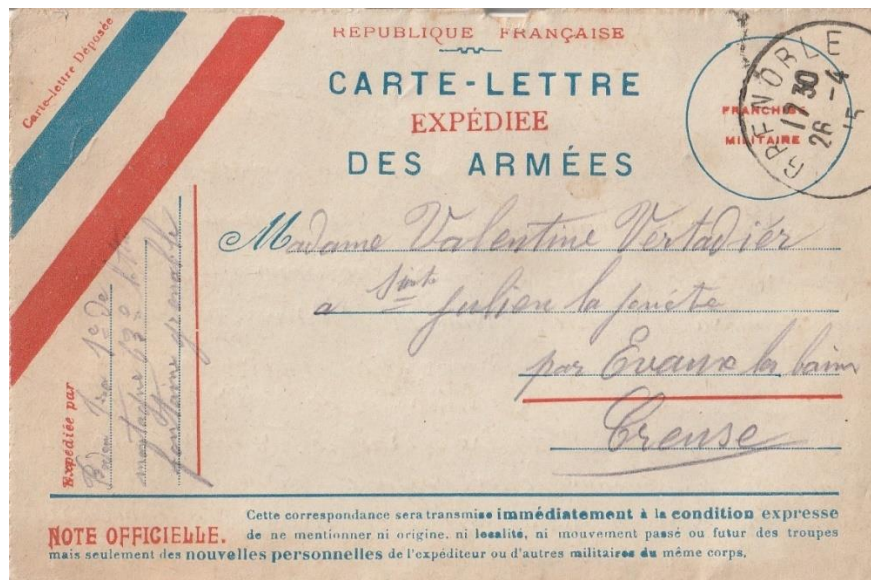 Carte-lettre Déposée
REPUBLIQUE FRANÇAISE
CARTE-LETTRE
EXPÉDIEE
DES ARMÉES
FRANCHISE
MILITAIRE
GRENOBLE
17 30
26 -4
15
Madame Valentine Vertadier
a Sint
Julien la
par Evaux les bains
Creuse
Expédiée par
1e de
montagne 63e
fontaine grenoble
Cette correspondance sera transmise immédiatement à la condition expresse
NOTE OFFICIELLE. de ne mentionner ni origine, ni localité, ni mouvement passé ou futur des troupes
mais seulement des nouvelles personnelles de l'expéditeur ou d'autres militaires du même corps.